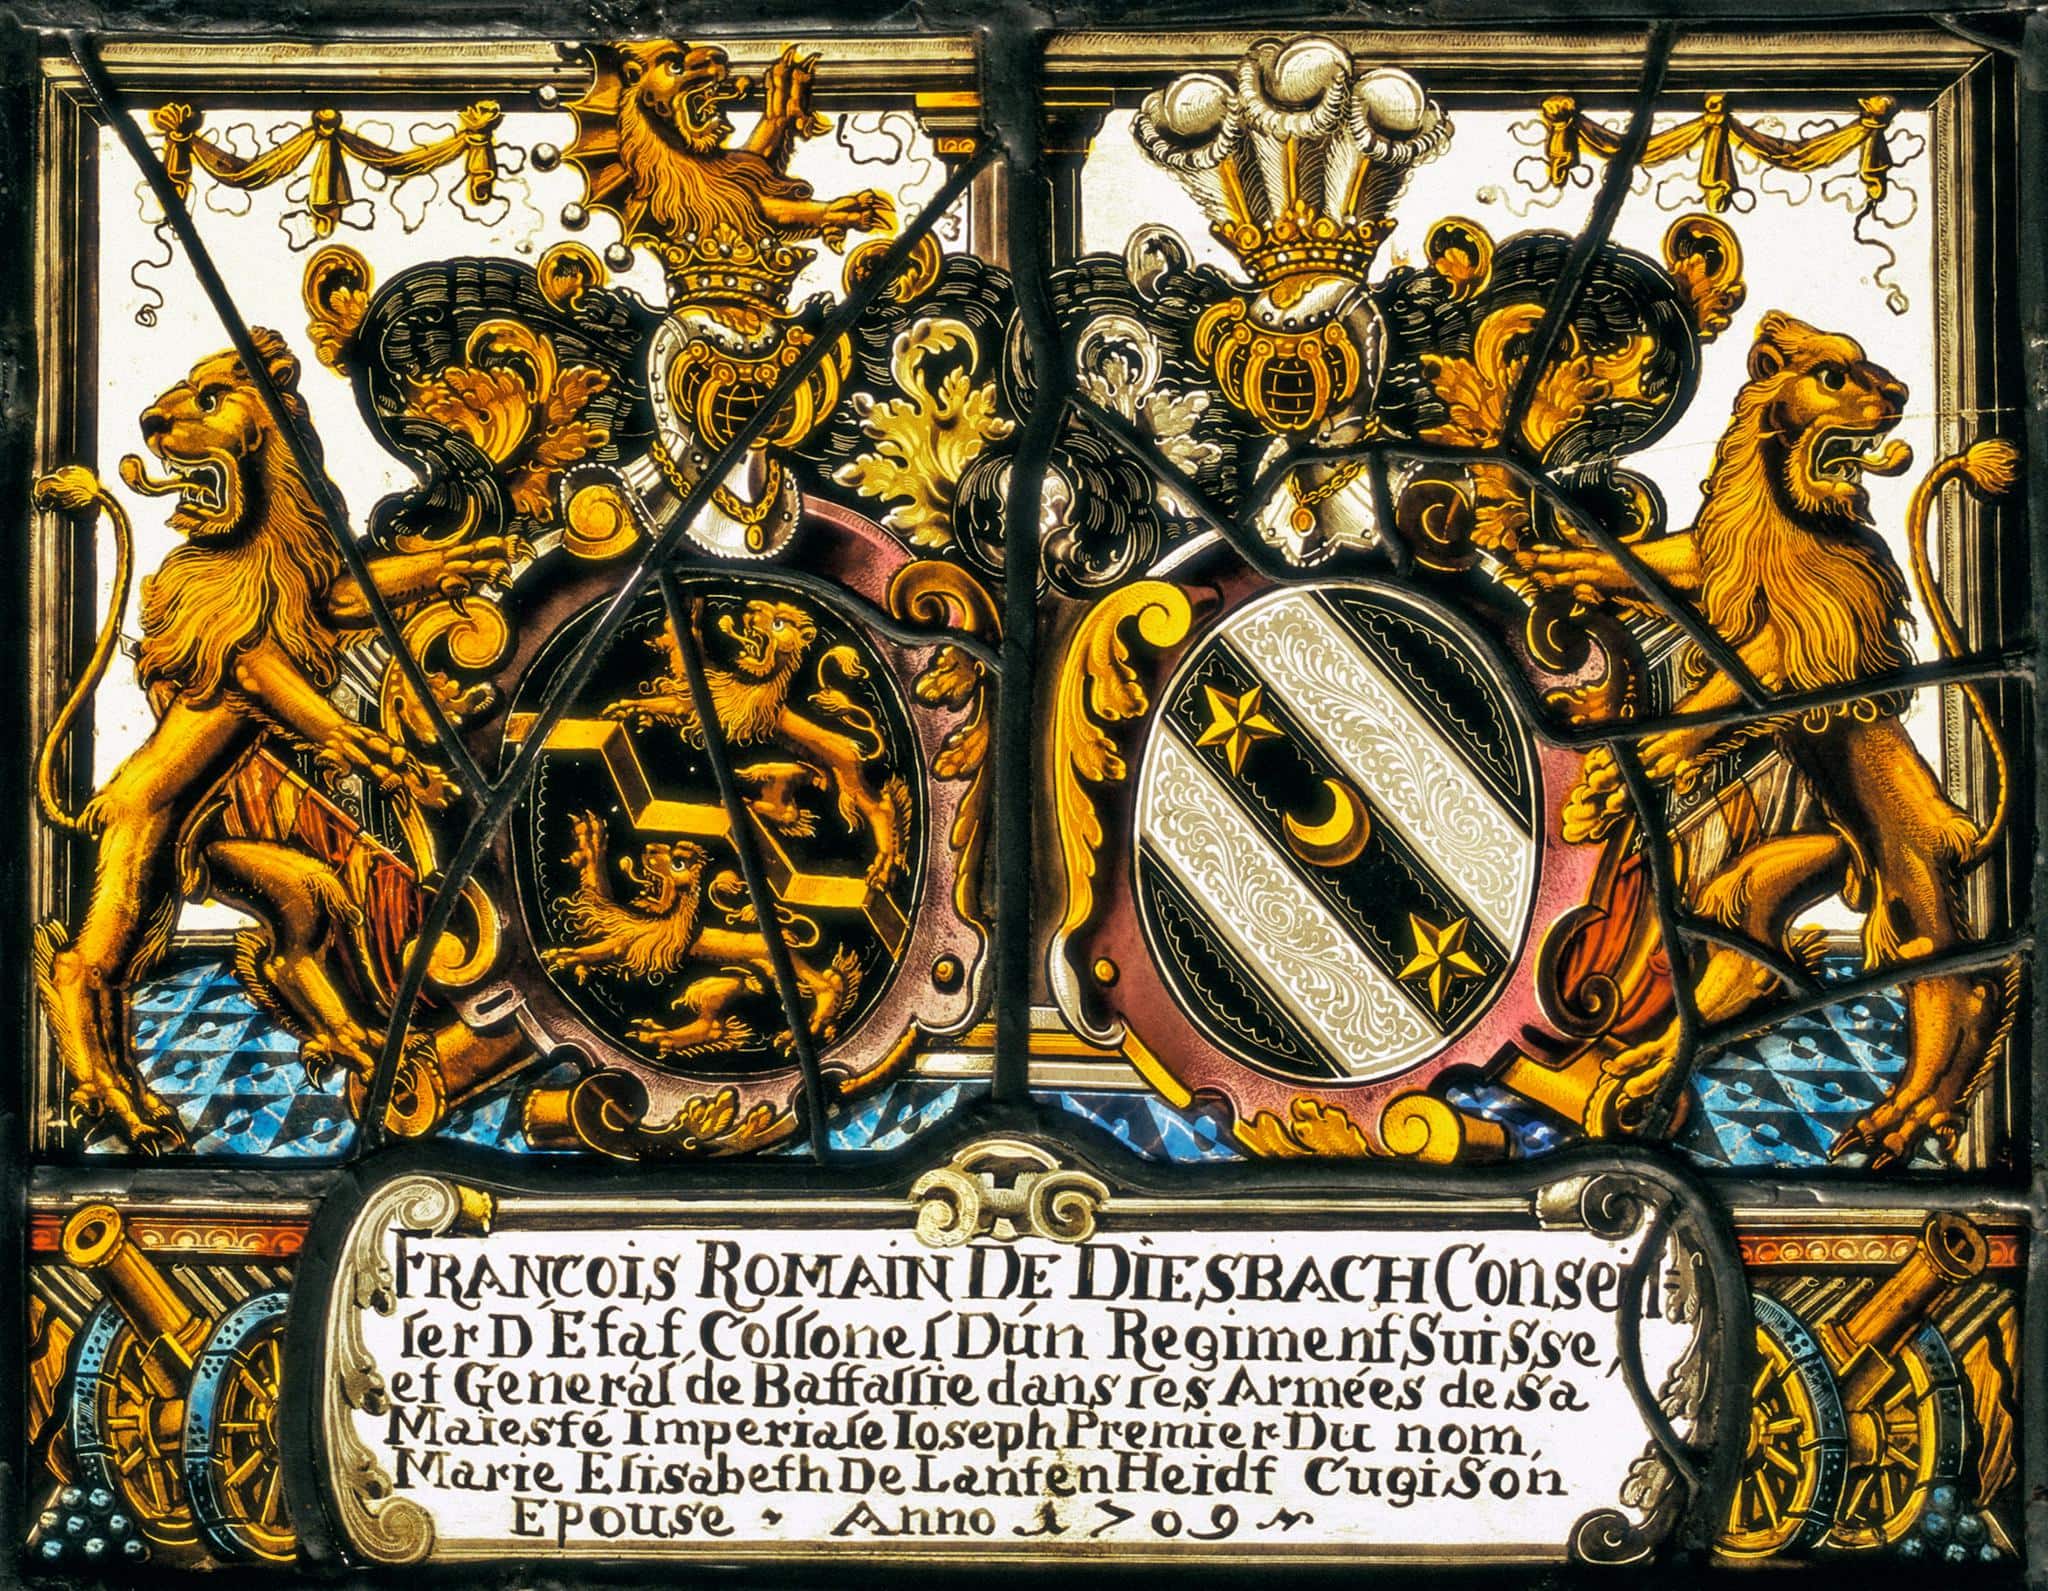 FRANCOIS ROMAIN DE DIESBACH Conseil-
ler D'Etat, Collonel Dún Regiment Suisse,
et General de Battallie dans les Armées de Sa
Maiesté Imperiale Ioseph Premier Du nom,
Marie Elisabeth De Lanten Heidt Cugi Son
Epouse · Anno 1709